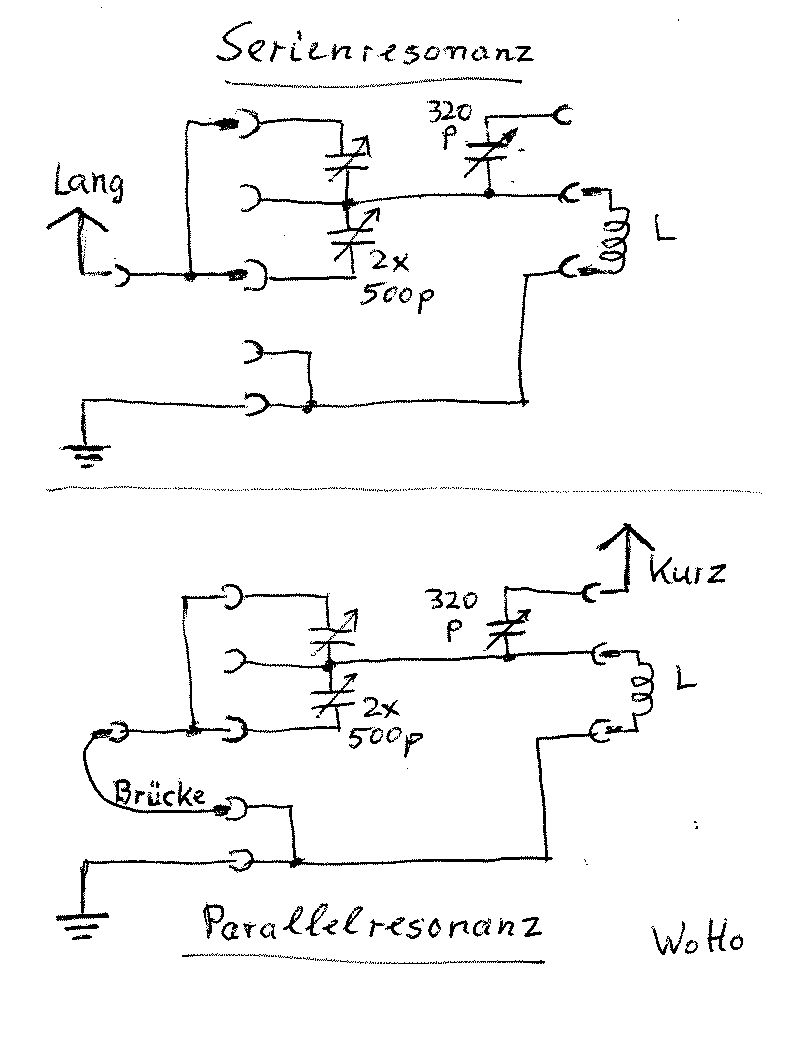 Serienresonanz
320
p
Lang
L
2x
500p
Kurz
320
p
L
2x
500p
Brücke
Parallelresonanz
WoHo